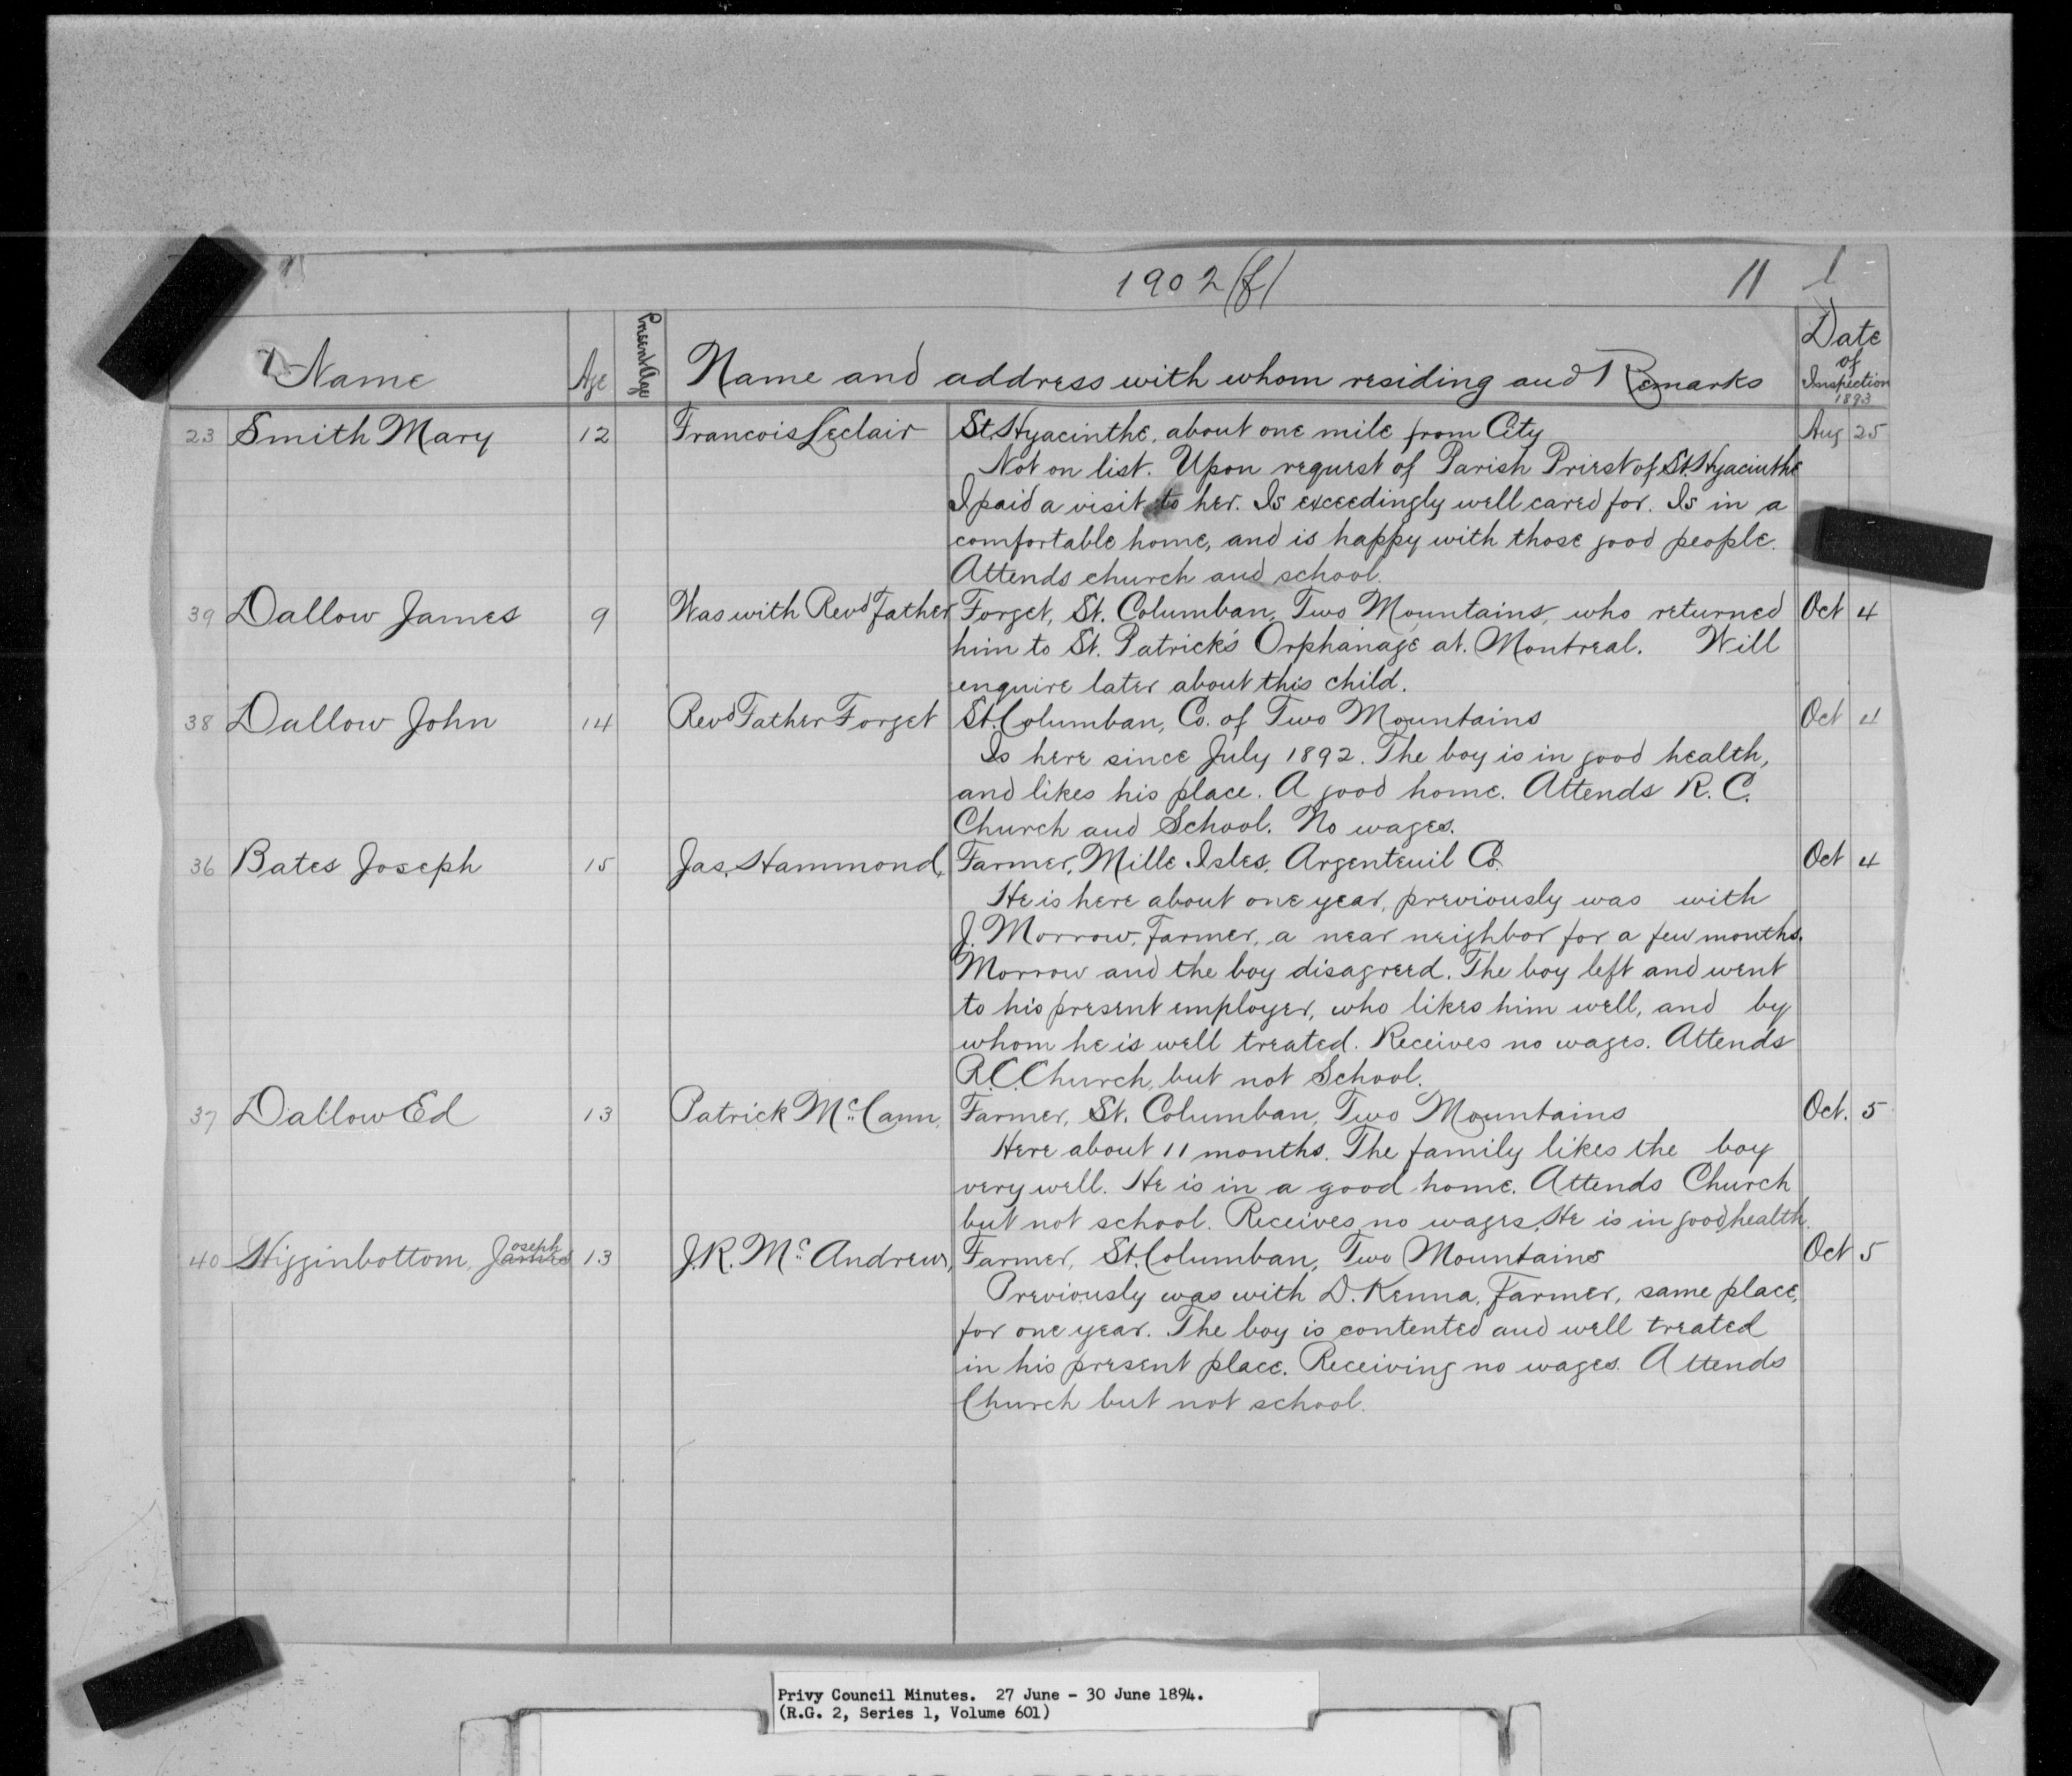 1902(f) 11
Name Age Present Age Name and address with whom residing and Remarks Date of Inspection 1893
23 Smith Mary 12 Francois Leclair St. Hyacinthe, about one mile from City Aug 25
Not on list. Upon request of Parish Priest of St. Hyacinthe
I paid a visit to her. Is exceedingly well cared for. Is in a
comfortable home, and is happy with those good people.
Attends church and school.
39 Dallow James 9 Was with Revd Father Forget, St. Columban, Two Mountains, who returned Oct 4
him to St. Patrick's Orphanage at Montreal. Will
enquire later about this child.
38 Dallow John 14 Revd Father Forget St. Columban, Co. of Two Mountains Oct 4
Is here since July 1892. The boy is in good health,
and likes his place. A good home. Attends R. C.
Church and School. No wages.
36 Bates Joseph 15 Jas. Hammond, Farmer, Mille Isles, Argenteuil Co. Oct 4
He is here about one year, previously was with
J. Morrow, Farmer, a near neighbor for a few months.
Morrow and the boy disagreed. The boy left and went
to his present employer, who likes him well, and by
whom he is well treated. Receives no wages. Attends
R.C. Church, but not School.
37 Dallow Ed 13 Patrick McCann, Farmer, St. Columban, Two Mountains Oct. 5
Here about 11 months. The family likes the boy
very well. He is in a good home. Attends Church
but not school. Receives no wages. He is in good health.
40 Higginbottom, James Joseph 13 J.R. McAndrew, Farmer, St. Columban, Two Mountains Oct 5
Previously was with D. Kenna, Farmer, same place,
for one year. The boy is contented and well treated
in his present place. Receiving no wages. Attends
Church but not school.
Privy Council Minutes. 27 June - 30 June 1894.
(R.G. 2, Series 1, Volume 601)